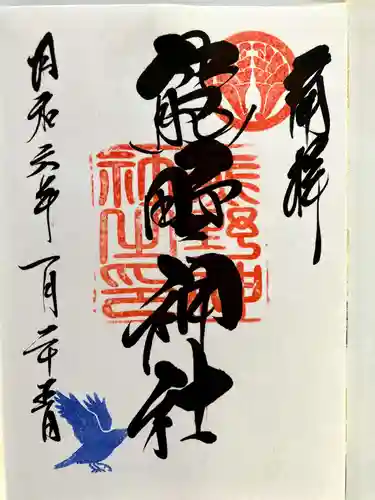 奉拝
熊野神社
熊野神
社之印
令和六年一月二十五日